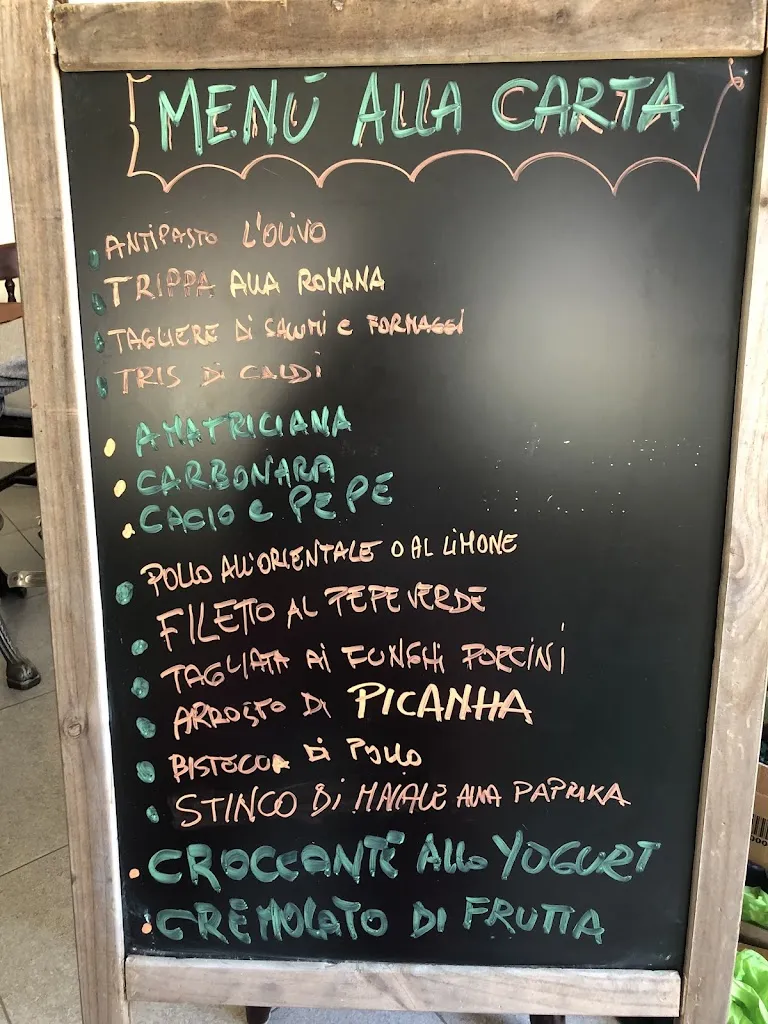 MENÙ ALLA CARTA
ANTIPASTO L'OLIVO
TRIPPA ALLA ROMANA
TAGLIERE DI SALUMI e FORMAGGI
TRIS DI CALDI
AMATRICIANA
CARBONARA
CACIO e PEPE
POLLO ALL'ORIENTALE O AL LIMONE
FILETTO AL PEPE VERDE
TAGLIATA AI FUNGHI PORCINI
ARROSTO DI PICANHA
BISTECCA DI POLLO
STINCO DI MAIALE ALLA PAPRIKA
CROCCANTE ALLO YOGURT
CREMOLATO DI FRUTTA